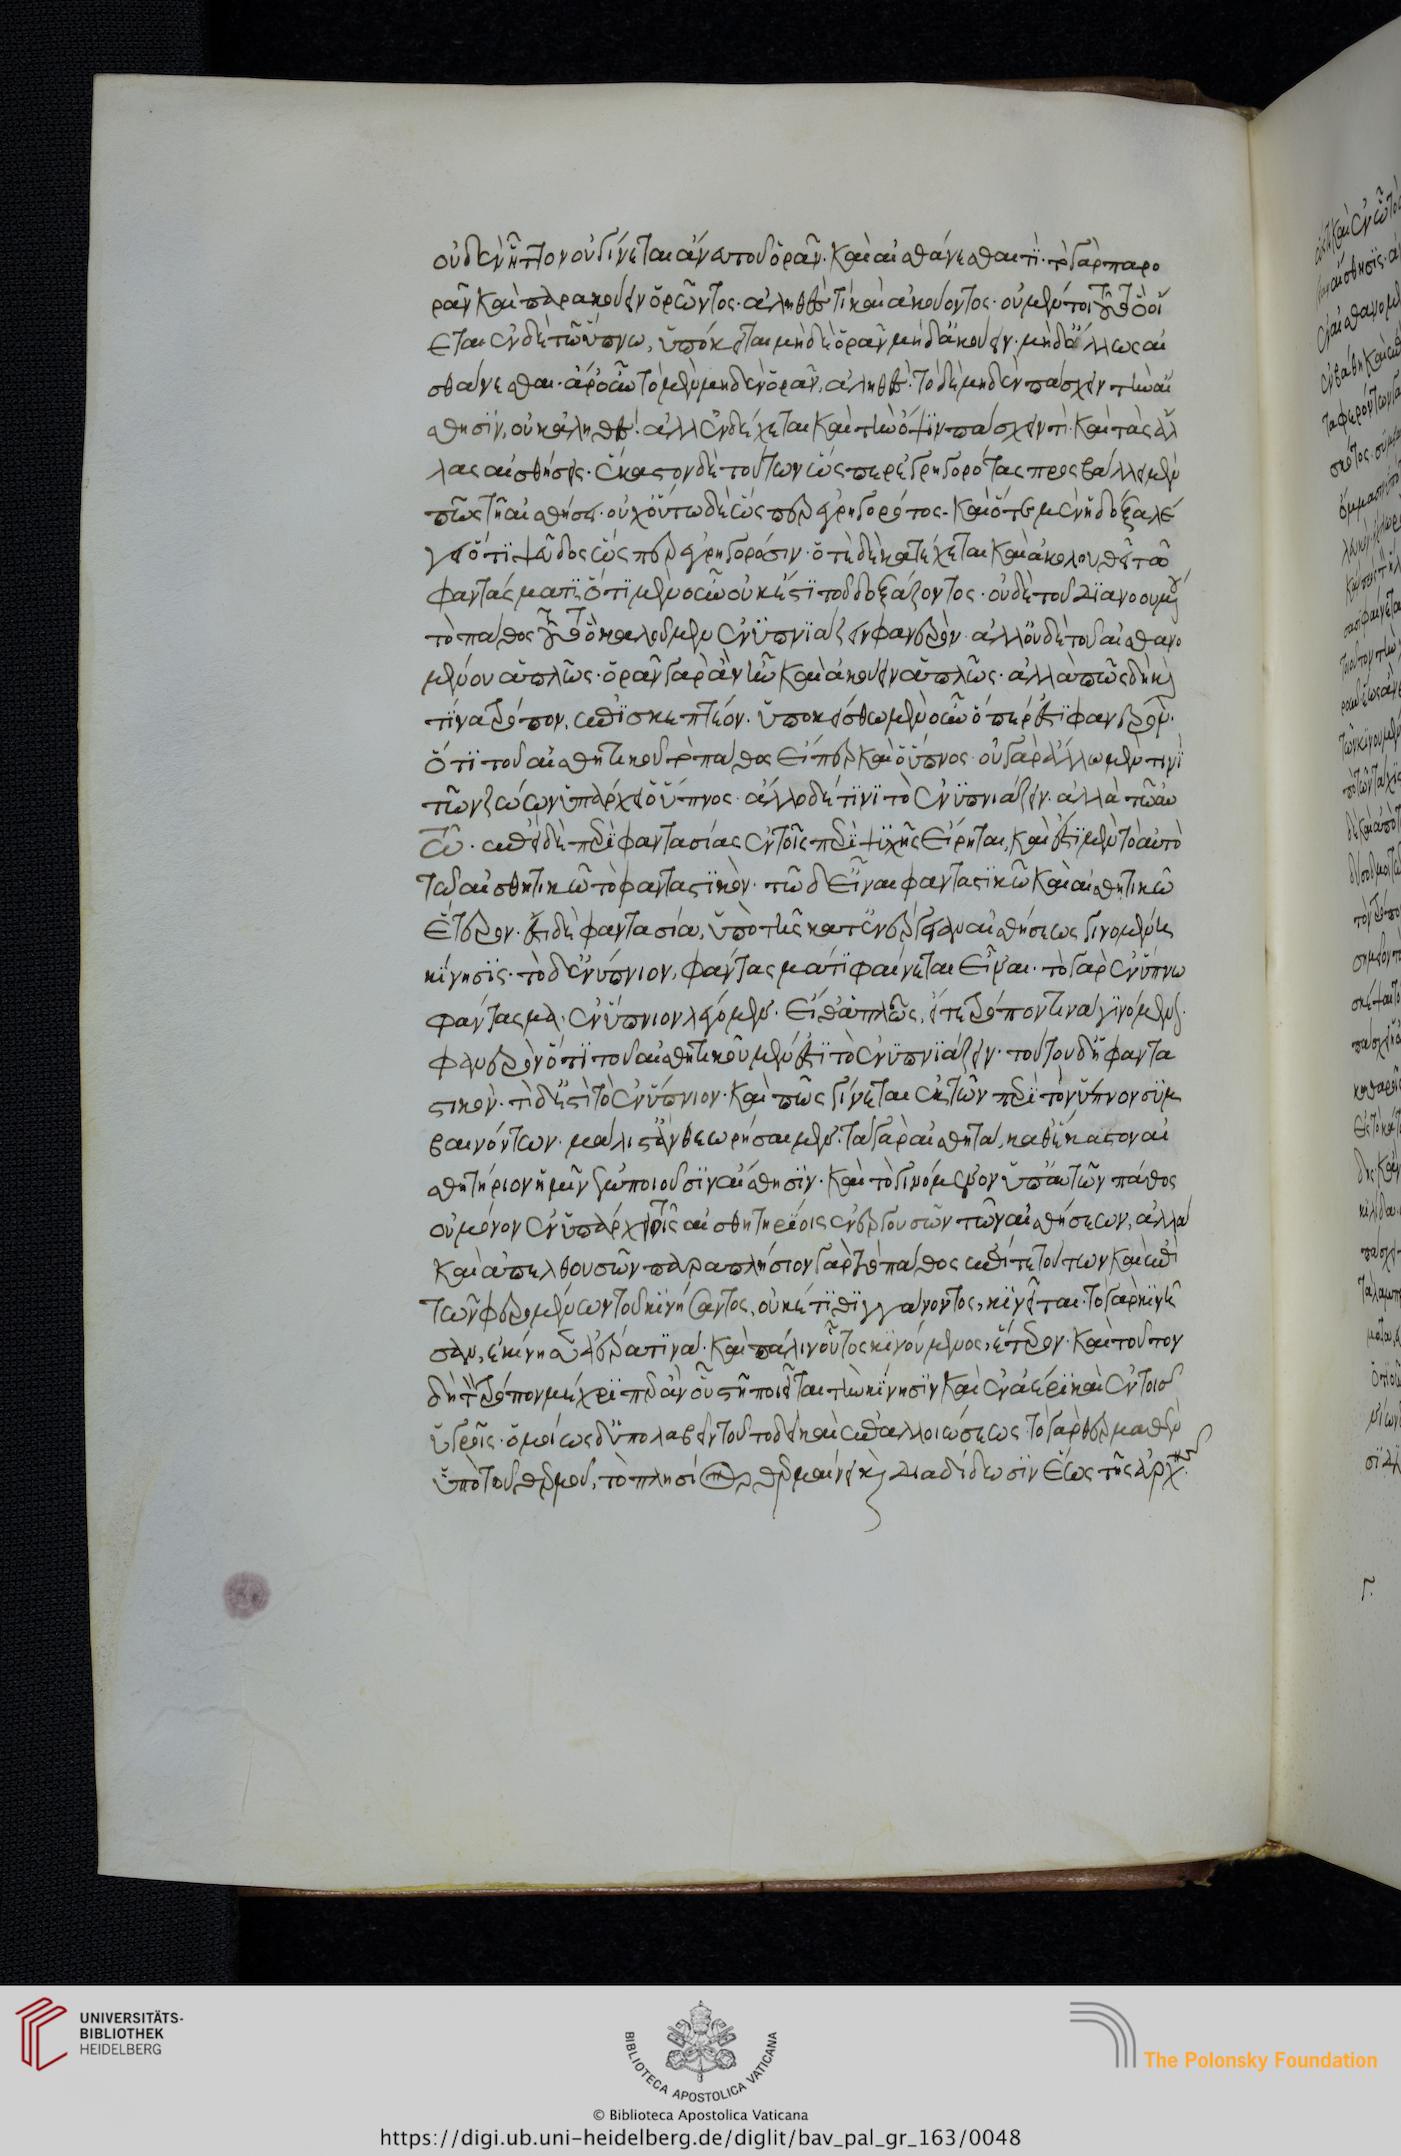 οὐδὲν ἧττον οὐ γίνεται ἄνευ τοῦ ὁρᾶν· καὶ αἰσθάνεσθαι τί· τὸ γὰρ παρο
ρᾶν καὶ παρακούειν ὁρῶντος· ἀληθές τι καὶ ἀκούοντος· οὐ μέντοι τοῦτο ὃ οἴ
εται· ἐν δὲ τῶ ὕπνω, ὑπόκειται μηδὲ ὁρᾶν μηδ' ἀκούειν· μηδ' ἄλλως αἰ
σθάνεσθαι· ἆρ' οὖν τὸ μὲν μηδὲν ὁρᾶν, ἀληθές· τὸ δὲ μηδὲν πάσχειν τὴν αἴ
σθησϊν, οὐκ ἀληθές· ἀλλ' ἐνδέχεται καὶ τὴν ὄψϊν πάσχειν τί· καὶ τὰς ἄλ
λας αἰσθήσεις· ἕκαστον δὲ τούτων ὥσπερ ἐγρηγορότας προσβάλλει μέν
πως τῆ αἰσθήσει· οὐχ οὕτω δὲ ὥσπερ ἐγρηγορότος· καὶ ὅτε μὲν ἡ δόξα λέ
γει ὅτϊ ψεῦδος ὥσπερ ἐγρηγορόσιν· ὁτὲ δὲ κατέχεται καὶ ἀκολουθεῖ τῶ
φαντάσματϊ, ὅτϊ μὲν οὖν οὐκ ἔστϊ τοῦ δοξάζοντος· οὐδὲ τοῦ διανοουμένου
τὸ πάθος τοῦτο ὃ καλοῦμεν ἐνϋπνϊάζειν φανερὸν· ἀλλ' οὐδὲ τοῦ αἰσθανο
μένου ἁπλῶς· ὁρᾶν γὰρ ἂν ἦν καὶ ἀκούειν ἁπλῶς· ἀλλὰ πῶς δὴ καὶ
τίνα τρόπον, ἐπϊσκεπτέον. ὑποκείσθω μὲν οὖν ὅπερ ἐστϊ φανερὸν.
ὅτϊ τοῦ αἰσθητικοῦ τὸ πάθος εἴπερ καὶ ὁ ὕπνος· οὐ γὰρ ἄλλω μὲν τινϊ
τῶν ζώων ὑπάρχει ὁ ὕπνος· ἄλλο δέ τϊνϊ τὸ ἐνϋπνιάζειν· ἀλλὰ τῶ αὐ
τῶ· ἐπεὶ δὲ περὶ φαντασίας ἐν τοῖς περὶ ψϋχῆς εἴρηται, καὶ ἔστϊ μὲν τὸ αὐτὸ
τῶ αἰσθητικῶ τὸ φανταστϊκὸν· τῶ δ' εἶναι φανταστϊκῶ καὶ αἰσθητικῶ
ἕτερον· ἔστι δὲ φαντασία, ἡ ὑπὸ τῆς κατ' ἐνέργειαν αἰσθήσεως γινομένης
κίνησϊς· τὸ δ' ἐνύπνιον, φάντασμά τϊ φαίνεται εἶναι· τὸ γὰρ ἐν ὕπνω
φάντασμα, ἐνύπνιον λέγομεν· εἴθ' ἁπλῶς, εἴτε τρόπον τινὰ γινόμενον·
φανερὸν ὅτϊ τοῦ αἰσθητικοῦ μέν ἐστϊ τὸ ἐνϋπνϊάζειν· τούτου δ' ἧ φαντα
στικὸν· τί δ' ἐστὶ τὸ ἐνύπνιον· καὶ πῶς γίνεται ἐκ τῶν περὶ τὸν ὕπνον συμ
βαινόντων· μάλιστ' ἂν θεωρήσαιμεν· τὰ γὰρ αἰσθητὰ, καθ' ἕκαστον αἰ
σθητήριον ἡμῖν ἐμποιοῦσϊν αἴσθησϊν· καὶ τὸ γινόμενον ὑπ' αὐτῶν πάθος
οὐ μόνον ἐνυπάρχει τοῖς αἰσθητηρίοις ἐνεργουσῶν τῶν αἰσθήσεων, ἀλλὰ
καὶ ἀπελθουσῶν· παραπλήσιον γὰρ τὸ πάθος ἐπί τε τούτων καὶ ἐπὶ
τῶν φερομένων τοῦ κϊνήσαντος, οὐκέτϊ θϊγγάνοντος, κϊνεῖται· τὸ γὰρ κϊνῆ
σαν, ἐκίνησεν ἀέρα τϊνα· καὶ πάλιν οὗτος κϊνούμενος, ἕτερον· καὶ τοῦτον
δὴ τὸν τρόπον μέχρϊ περ ἂν οὗ στῆ ποιεῖται τὴν κϊνησϊν καὶ ἐν ἀέρϊ καὶ ἐν τοῖς
ὑγροῖς· ὁμοίως δ' ὑπολαβεῖν τοῦτο δεῖ καὶ ἐπ' ἀλλοιώσεως· τὸ γὰρ θερμανθὲν
ὑπὸ τοῦ θερμοῦ, τὸ πλησίον θερμαίνει καὶ διαδίδωσϊν ἕως τῆς ἀρχῆς·
UNIVERSITÄTS-
BIBLIOTHEK
HEIDELBERG
BIBLIOTECA APOSTOLICA VATICANA
The Polonsky Foundation
© Biblioteca Apostolica Vaticana
https://digi.ub.uni-heidelberg.de/diglit/bav_pal_gr_163/0048